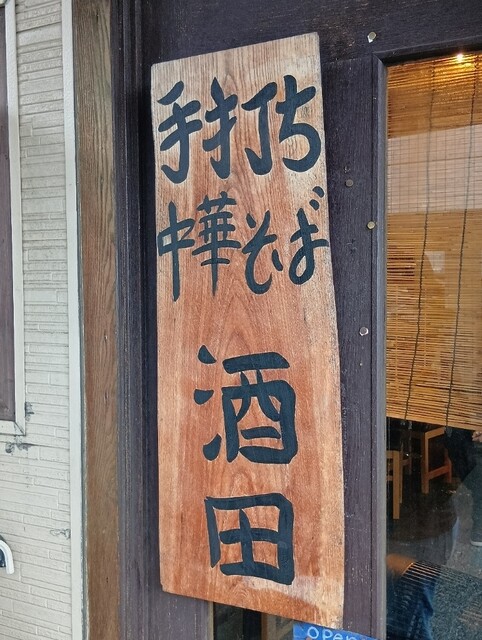 手打ち
中華そば
酒田
OPEN